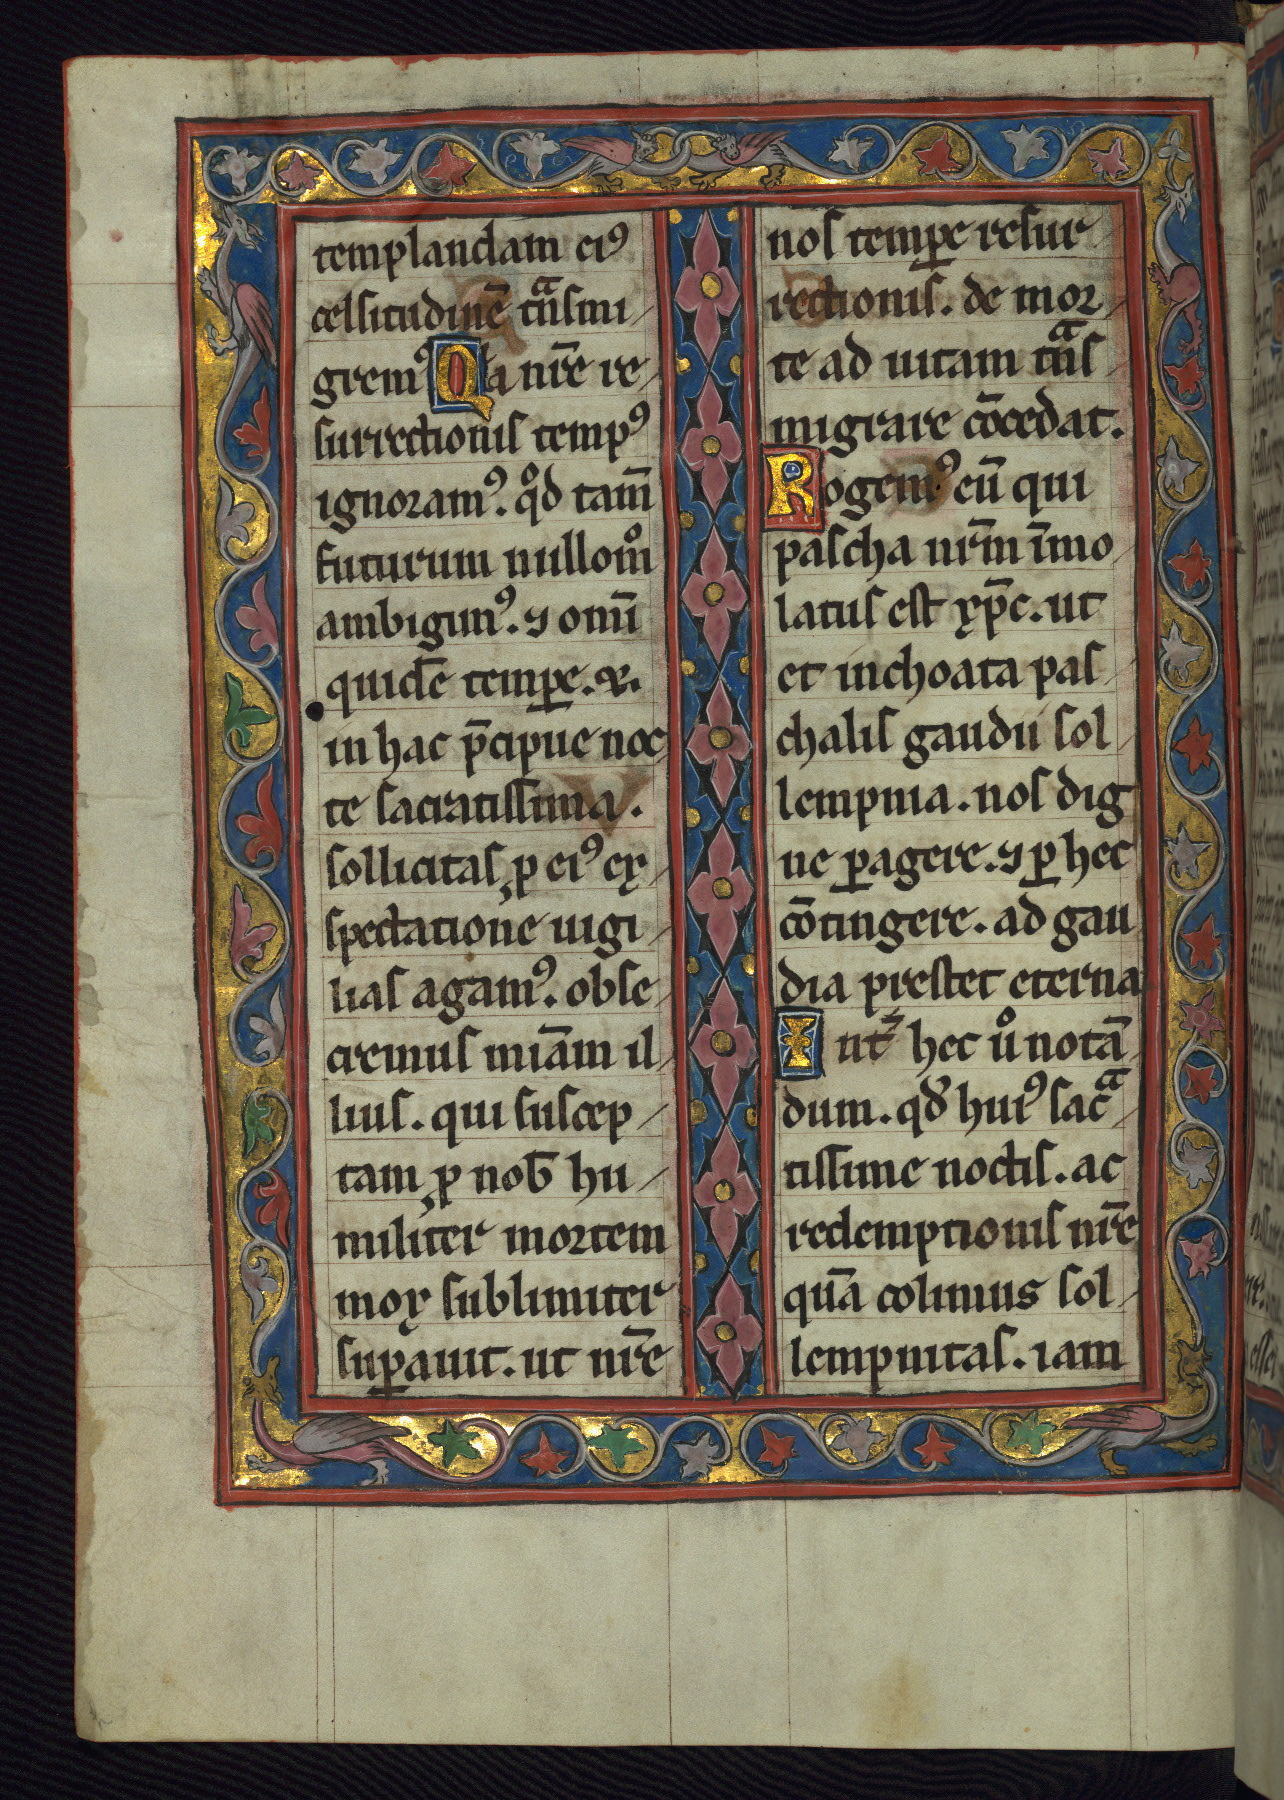 templandam eiꝰ
celsitudinē tᷓnsmi
gremꝰ Qa nr̄e re
surrectionis tempꝰ
ignoramꝰ. qͦd tam̄
futurum nullomͦ
ambigimꝰ. ⁊ omī
quidē temꝑe. ⁊.
in hac p̄cipue noc
te sacratissima.
sollicitas ꝓ eiꝰ ex
spectatione uigi
lias agamꝰ. obse
cremus miām il
lius. qui suscep
tam ꝓ nob̄ hu
militer mortem
mox sublimiter
suꝑauit. ut nr̄e
nos temꝑe resur
rectionis. de mor
te ad uitam tᷓns
migrare cōcedat.
Rogemꝰ eū qui
pascha nr̄m īmo
latus est xp̄c. ut
et inchoata pas
chalis gaudii sol
lempnia. nos dig
ne ꝑagere. ⁊ ꝑ hec
cōtingere. ad gau
dia prestet eterna
Int᷑ hec uͦ notā
dum. qd̄ huiꝰ sacᷓ
tissime noctis. ac
redemptionis nr̄e
quā colimus sol
lempnitas. iam